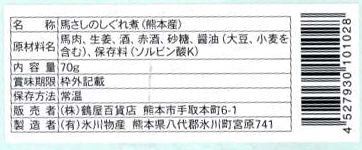 名称 馬さしのしぐれ煮(熊本産)
原材料名 馬肉、生姜、酒、赤酒、砂糖、醤油(大豆、小麦を
含む)、保存料(ソルビン酸K)
内容量 70g
賞味期限 枠外記載
保存方法 常温
販売者 (株)鶴屋百貨店 熊本市手取本町6-1
製造者 (有)氷川物産 熊本県八代郡氷川町宮原741
4 527930 101028